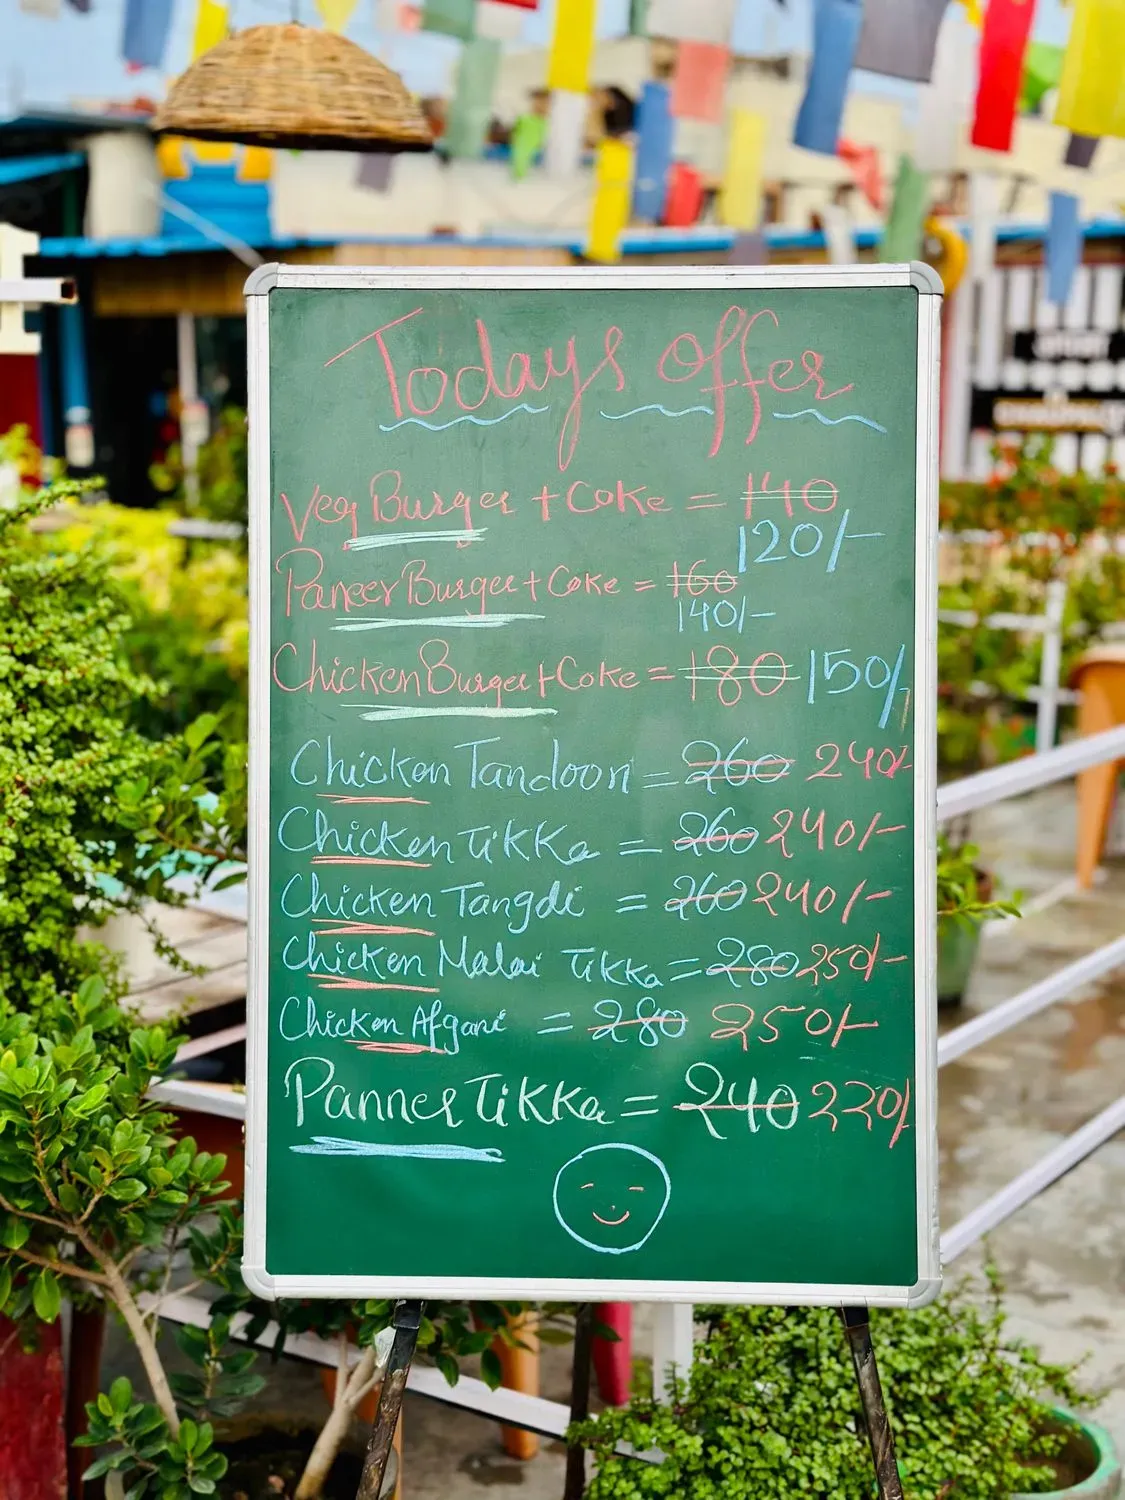 Todays offer
Veg Burger + Coke = 140
120/-
Paneer Burger + Coke = 160
140/-
Chicken Burger + Coke = 180 150/-
Chicken Tandoori = 260 240/-
Chicken Tikka = 260 240/-
Chicken Tangdi = 260 240/-
Chicken Malai Tikka = 280 250/-
Chicken Afgani = 280 250/-
Panner Tikka = 240 220/-